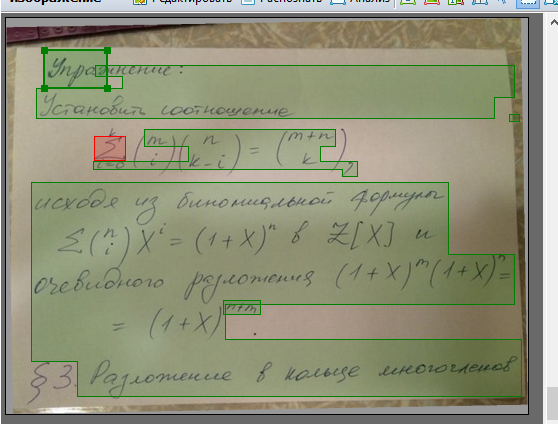 изображение Редактировать Распознать Анализ
Упражнение:
Установить соотношение
∑_{i=0}^{k} (m i)(n k-i) = (m+n k),
исходя из биномиальной формулы
∑(n i)X^i = (1+X)^n в Z[X] и
очевидного разложения (1+X)^m(1+X)^n =
= (1+X)^{n+m}.
§3. Разложение в кольце многочленов